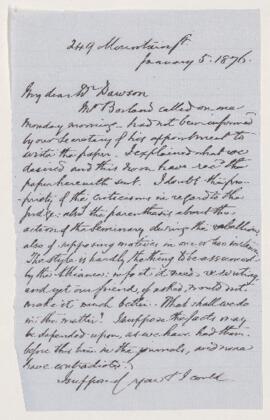 249 Mountain St.
January 5. 1876.
My dear Dr Dawson
Mr Borland called on me
Monday morning – had not been informed
by our Secretary of his appointment to
write the paper. I explained what we
desired and this noon have recd the
paper herewith sent. I doubt the pro-
priety of the criticisms in regard to the
also the parenthesis about the
action of the Seminary during the rebellion,
also of supposing motives in one or two
The style is hardly the thing to be assumed
by the Alliance: in fact it needs re writing
and yet our friend, if asked, would not
make it much better. What shall we do
in the matter? I suppose the facts may
be depended upon, as we have had them
before this in the journals, and none
have contradicted.
Suppose I could